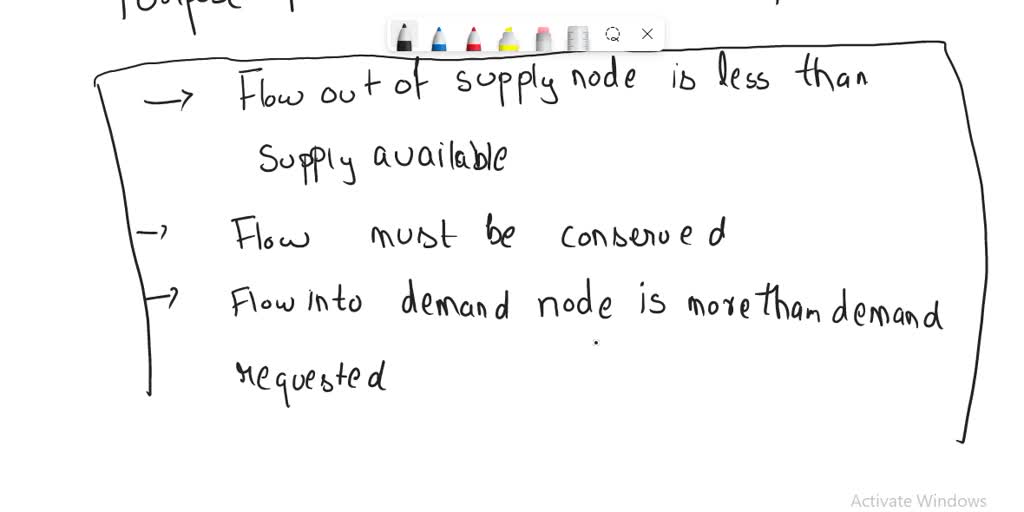 Flow out of supply node is less than
supply available
Flow must be conserved
Flow into demand node is more than demand
requested
Activate Windows